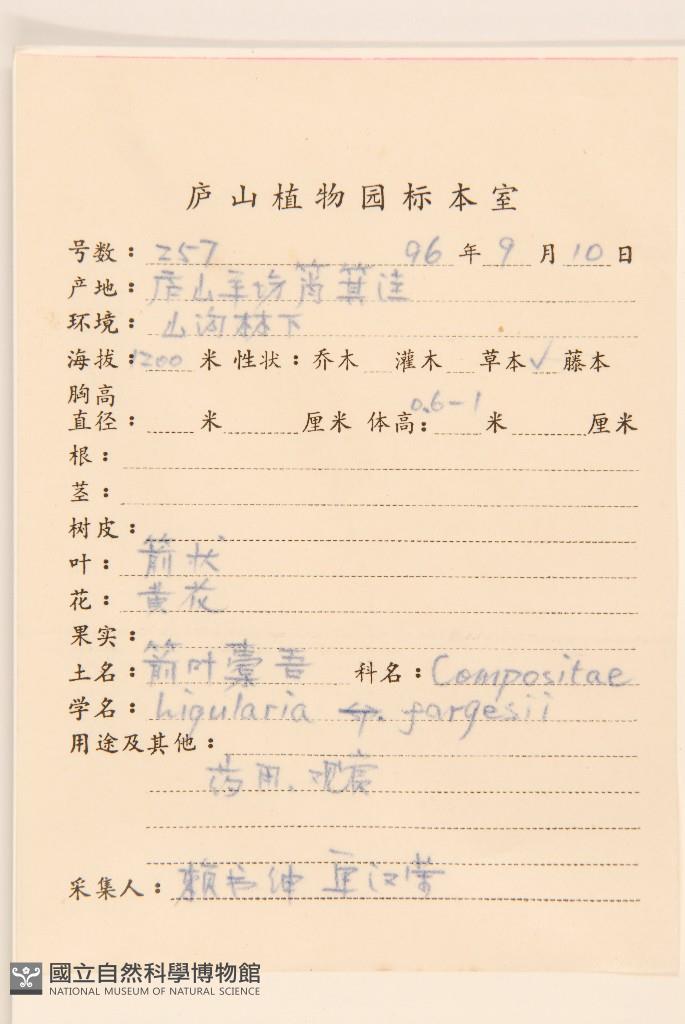 庐山植物园标本室
号数：257 96年9月10日
产地：庐山羊坊筲箕洼
环境：山沟林下
海拔：1200米 性状：乔木 灌木 草本✓ 藤本
胸高
直径： 米 厘米 体高：0.6-1米 厘米
根：
茎：
树皮：
叶：箭状
花：黄花
果实：
土名：箭叶橐吾 科名：Compositae
学名：Ligularia fargesii
用途及其他：
药用、观赏
采集人：赖书绅 汉
國立自然科學博物館
NATIONAL MUSEUM OF NATURAL SCIENCE